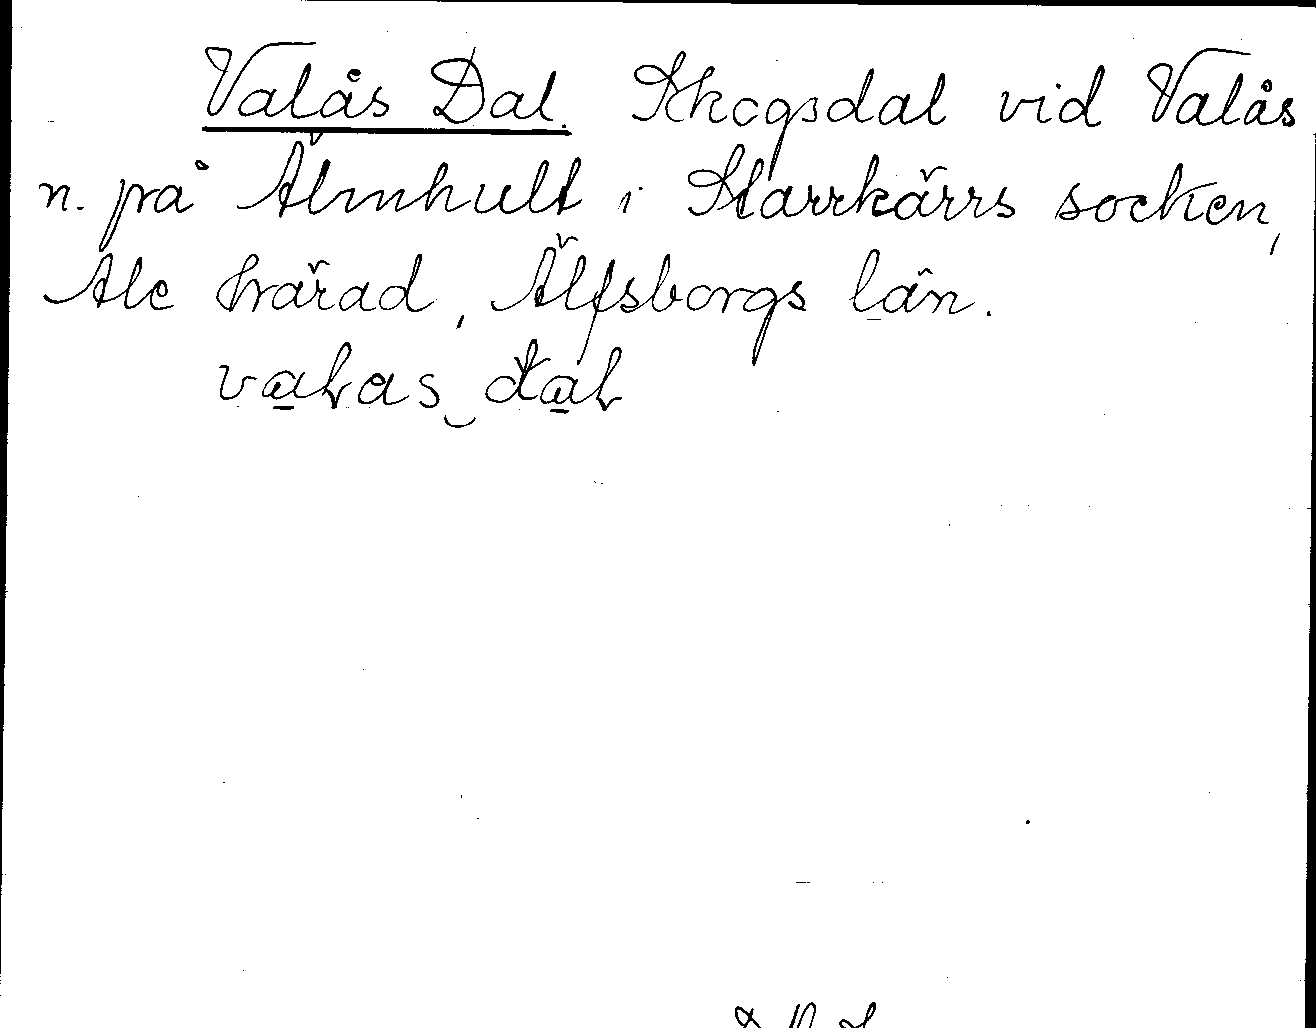 Valås Dal. Skogsdal vid Valås
n. på Älmhult i Starrkärrs socken,
Ale härad, Älfsborgs län.